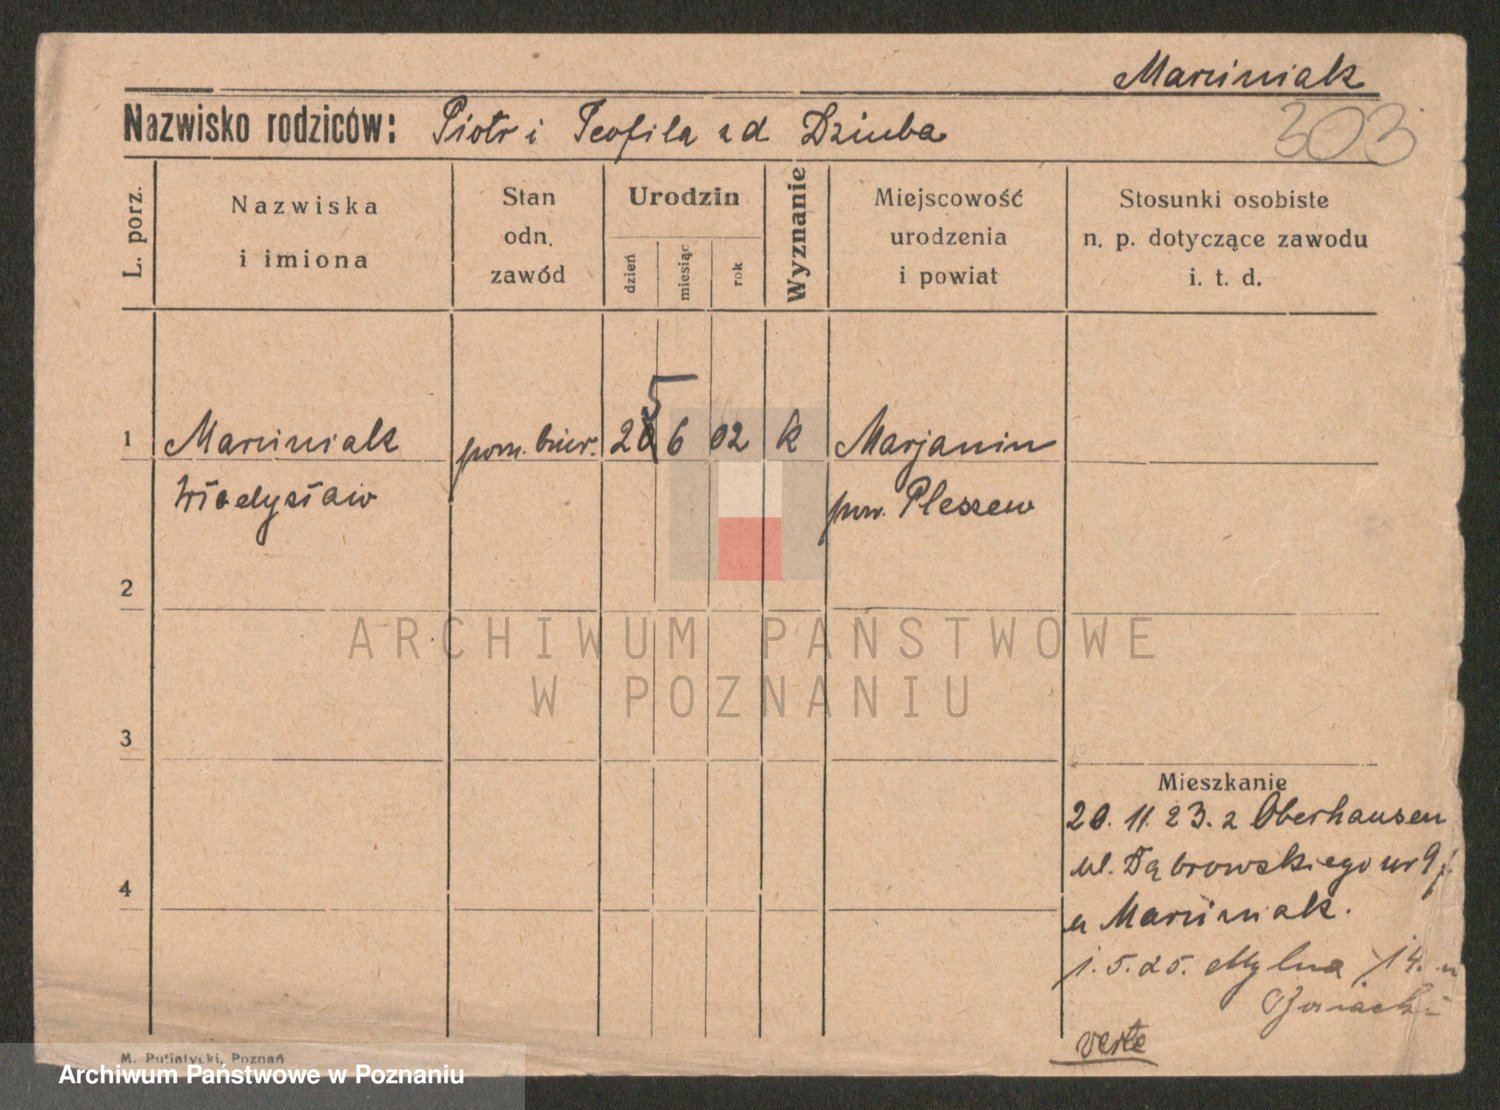 Marciniak
303
Nazwisko rodziców: Piotr i Teofila z d Dziuba
L. porz.
Nazwiska
i imiona
Stan
odn.
zawód
Urodzin
dzień
miesiąc
rok
Wyznanie
Miejscowość
urodzenia
i powiat
Stosunki osobiste
n. p. dotyczące zawodu
i. t. d.
1 Marciniak pom. biur. 25 6 02 k Marjanin
Władysław pow. Pleszew
2
ARCHIWUM PAŃSTWOWE
W POZNANIU
3
Mieszkanie
20. 11. 23. z Oberhausen
ul. Dąbrowskiego nr 9
u Marciniak.
4
1. 5. 25. Mylna 14. u
verte
M. Putiatycki, Poznań
Archiwum Państwowe w Poznaniu